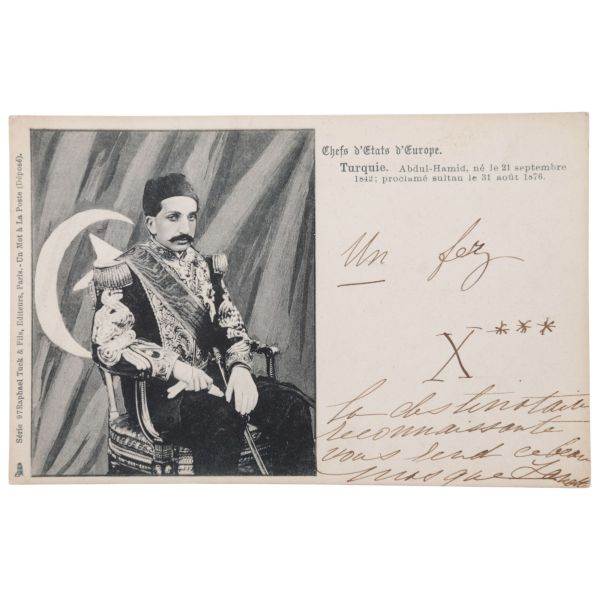 Chefs d'Etats d'Europe.
Turquie. Abdul-Hamid, né le 21 septembre
1842; proclamé sultan le 31 août 1876.
Un fez
X***
la destinataire
reconnaissante
vous rend ce beau
mosque
Série 97 Raphael Tuck & Fils, Editeurs, Paris.- Un Mot à La Poste (Déposé).